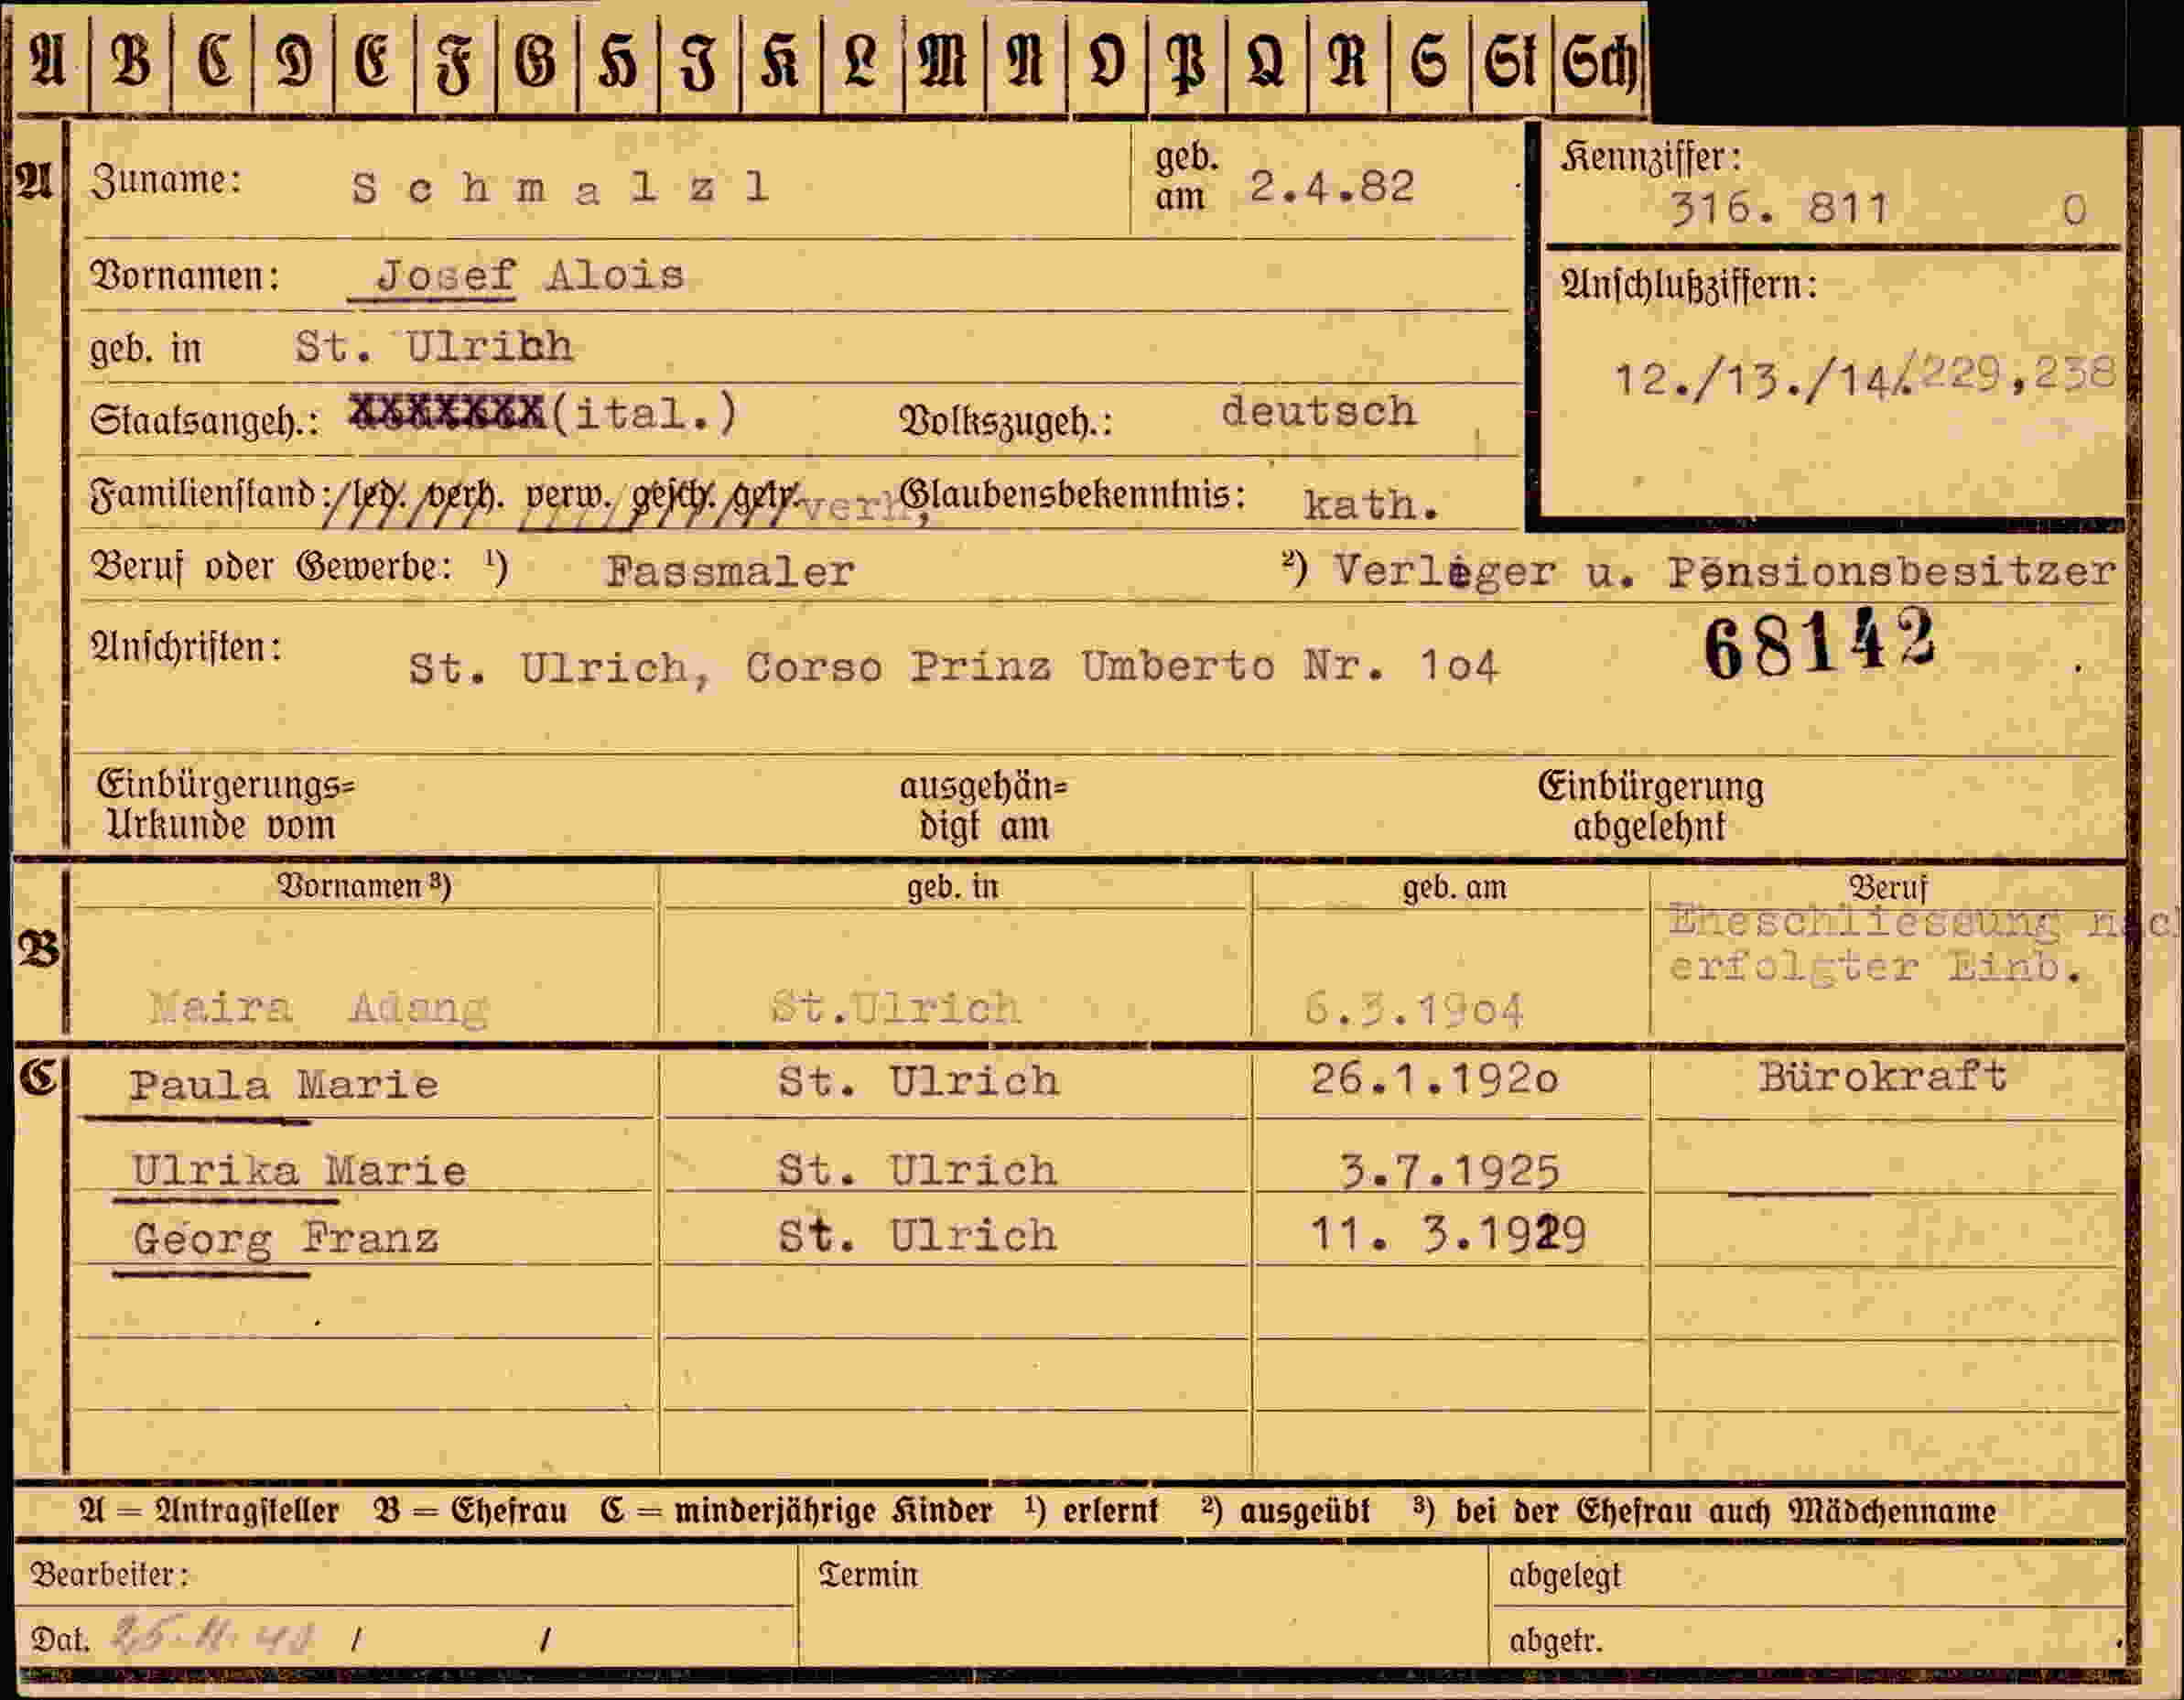 A B C D E F G H I K L M N O P Q R S St Sch
A Zuname: Schmalzl geb. am 2.4.82 Kennziffer: 316. 811 0
Vornamen: Josef Alois Anschlußziffern:
geb. in St. Ulribh 12./13./14/.229,238
Staatsangeh.: XXXXXXX(ital.) Volkszugeh.: deutsch
Familienstand: led. verh. verw. gesch. getr. verh, Glaubensbekenntnis: kath.
Beruf oder Gewerbe: ¹) Fassmaler ²) Verleger u. Pensionsbesitzer
Anschriften: St. Ulrich, Corso Prinz Umberto Nr. 1o4 68142
Einbürgerungs= ausgehän= Einbürgerung
Urkunde vom digt am abgelehnt
Vornamen ³) geb. in geb. am Beruf
B Eheschliessung nach
erfolgter Einb.
Maira Adang St.Ulrich 6.3.19o4
C Paula Marie St. Ulrich 26.1.192o Bürokraft
Ulrika Marie St. Ulrich 3.7.1925
Georg Franz St. Ulrich 11. 3.1929
A = Antragsteller B = Ehefrau C = minderjährige Kinder ¹) erlernt ²) ausgeübt ³) bei der Ehefrau auch Mädchenname
Bearbeiter: Termin abgelegt
Dat. 25. 11. 40 / / abgetr.